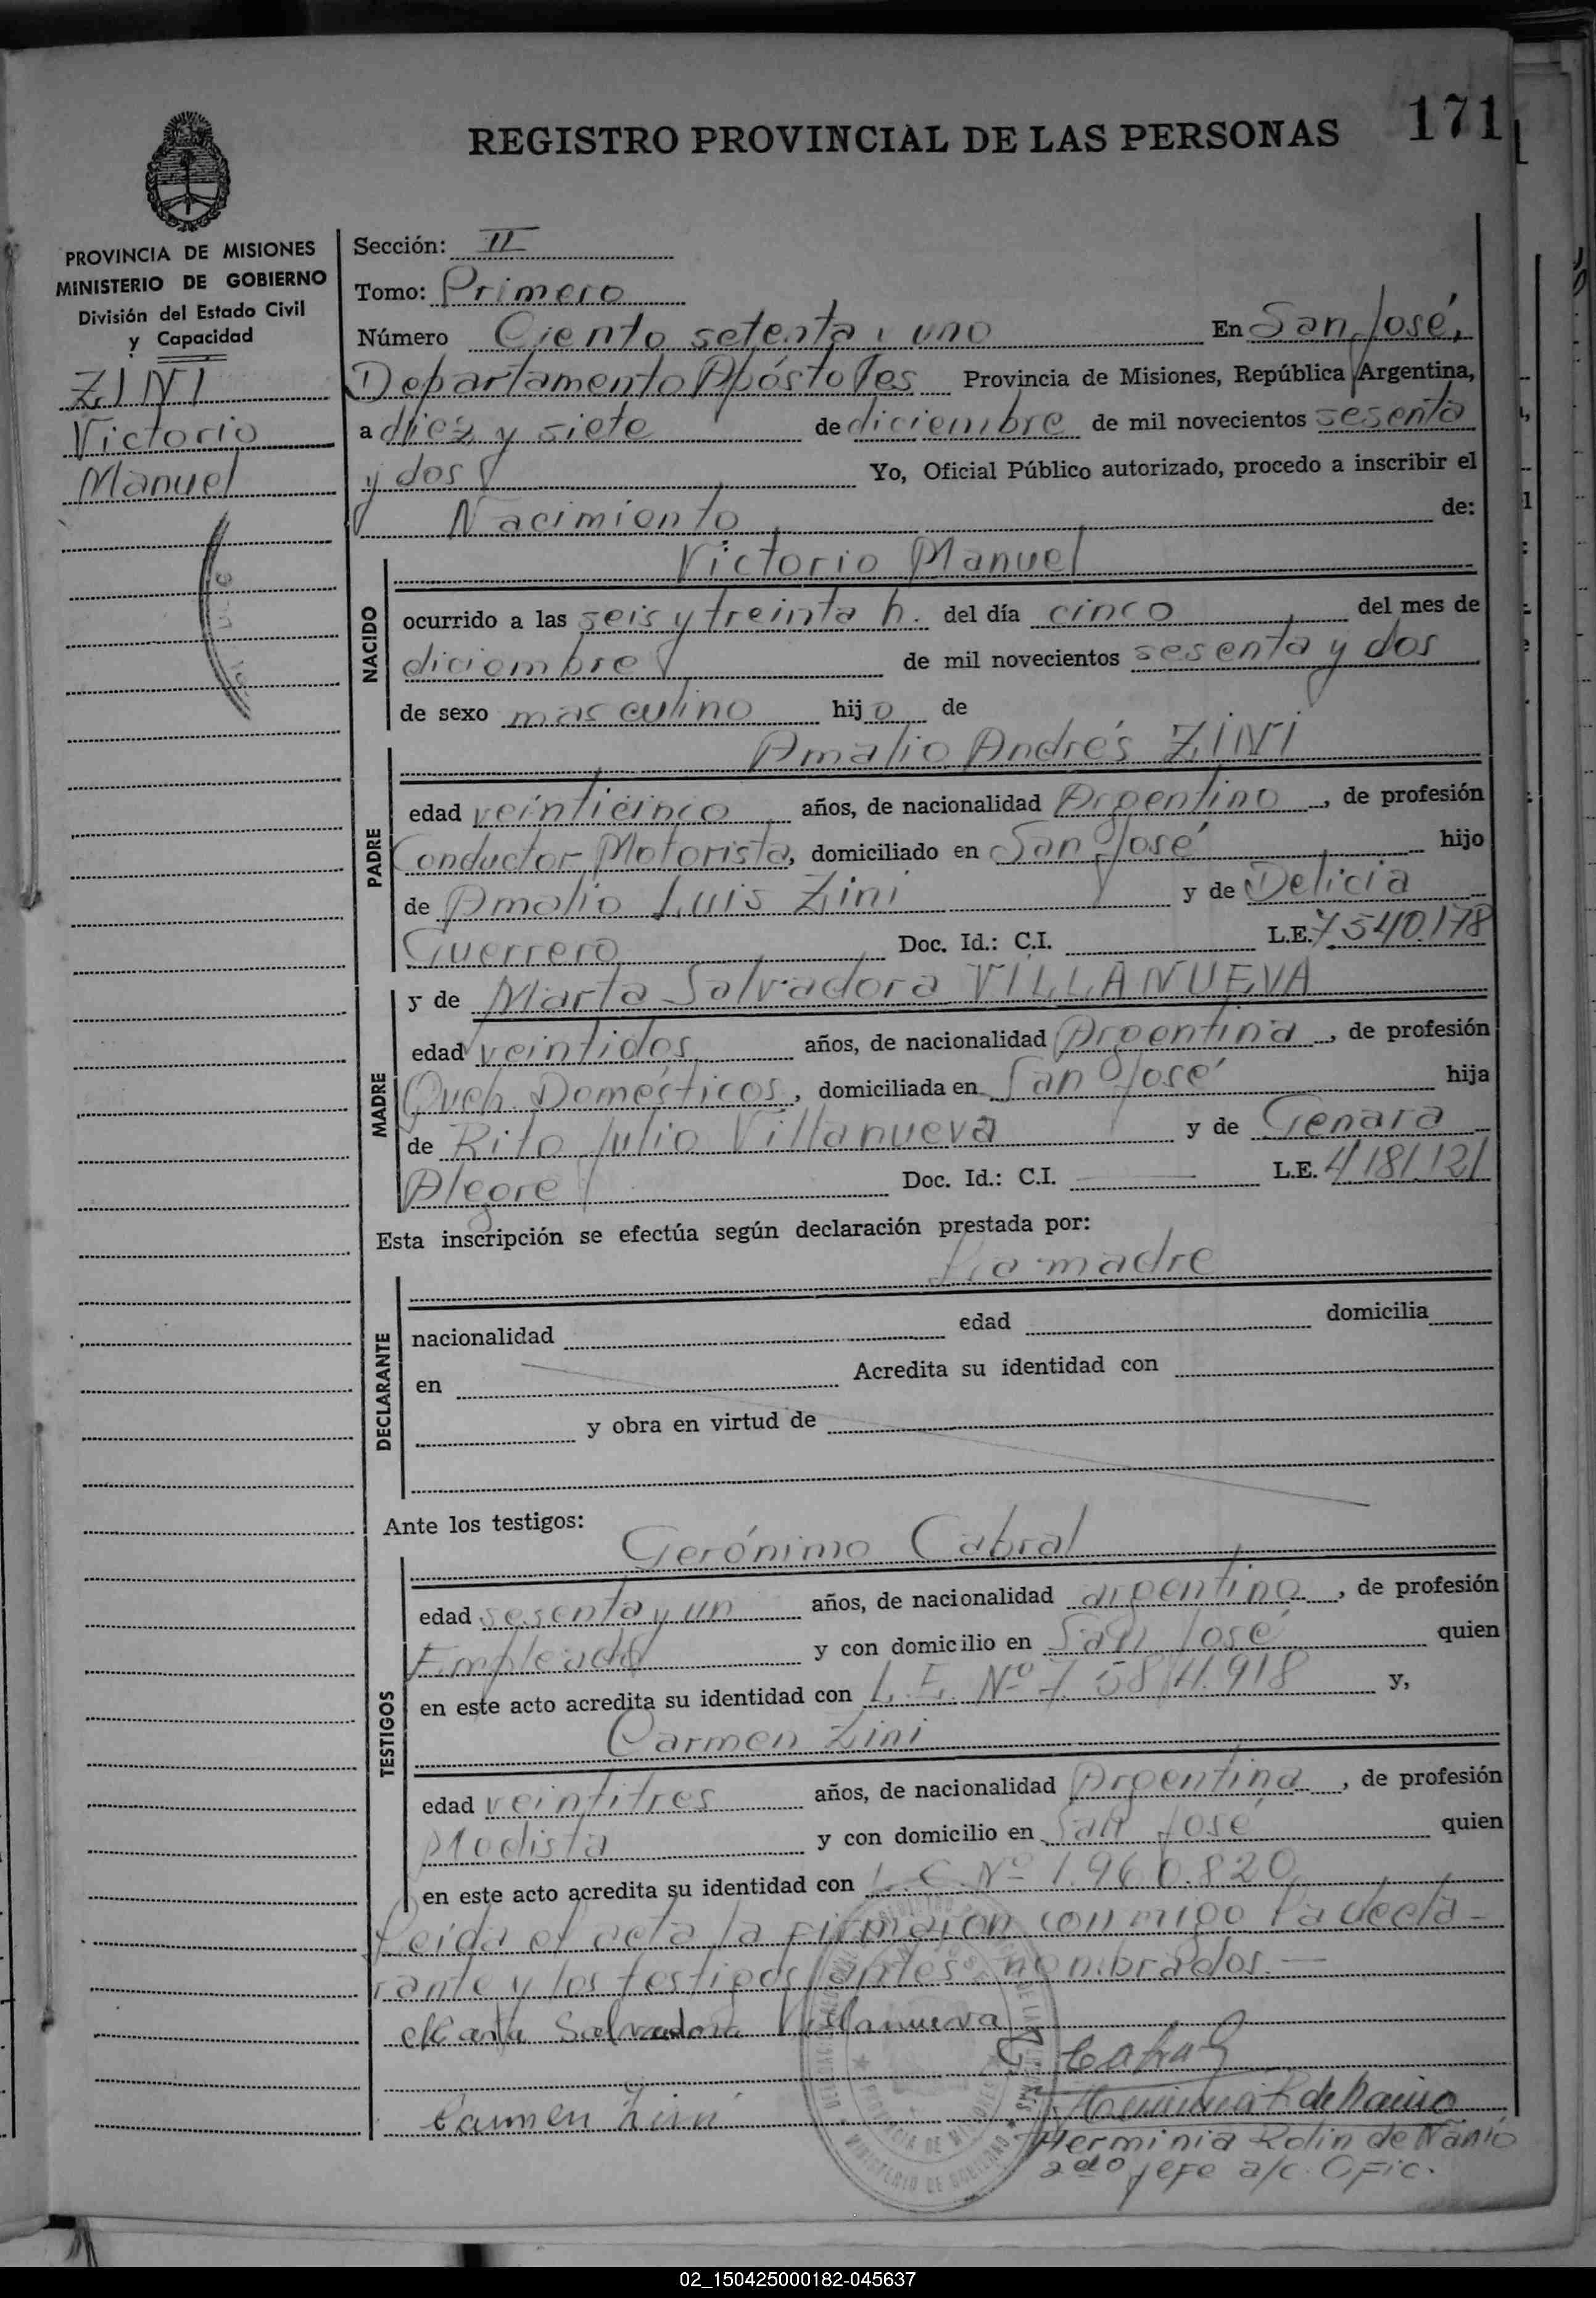 171
REGISTRO PROVINCIAL DE LAS PERSONAS
PROVINCIA DE MISIONES
MINISTERIO DE GOBIERNO
División del Estado Civil
y Capacidad
ZINI
Victorio
Manuel
Sección: II
Tomo: Primero
Número Ciento setenta y uno En San José,
Departamento Apóstoles Provincia de Misiones, República Argentina,
a diez y siete de diciembre de mil novecientos sesenta
y dos Yo, Oficial Público autorizado, procedo a inscribir el
Nacimiento de:
NACIDO
Victorio Manuel
ocurrido a las seis y treinta h. del día cinco del mes de
diciembre de mil novecientos sesenta y dos
de sexo masculino hijo de
PADRE
Amalio Andrés ZINI
edad veinticinco años, de nacionalidad Argentino, de profesión
Conductor Motorista, domiciliado en San José hijo
de Amalio Luis Zini y de Delicia
Guerrero Doc. Id.: C.I. L.E. 7540.178
MADRE
y de Marta Salvadora VILLANUEVA
edad veintidos años, de nacionalidad Argentina, de profesión
Queh. Domésticos, domiciliada en San José hija
de Rito Julio Villanueva y de Genara
Alegre Doc. Id.: C.I. L.E. 4181.121
Esta inscripción se efectúa según declaración prestada por:
La madre
DECLARANTE
nacionalidad edad domicilia
en Acredita su identidad con
y obra en virtud de
Ante los testigos:
TESTIGOS
Gerónimo Cabral
edad sesenta y un años, de nacionalidad argentino, de profesión
Empleado y con domicilio en San José quien
en este acto acredita su identidad con L.E. Nº 7.584.918 y,
Carmen Zini
edad veintitres años, de nacionalidad Argentina, de profesión
Modista y con domicilio en San José quien
en este acto acredita su identidad con L.C. Nº 1.960.820
Leida el acta la firmaron conmigo la decla-
rante y los testigos antes nombrados.—
Marta Salvadora Villanueva
G. Cabral
Carmen Zini
Herminia Rolin de
2do jefe a/c. Ofic.
PROVINCIA DE MISIONES
MINISTERIO DE GOBIERNO
02_150425000182-045637